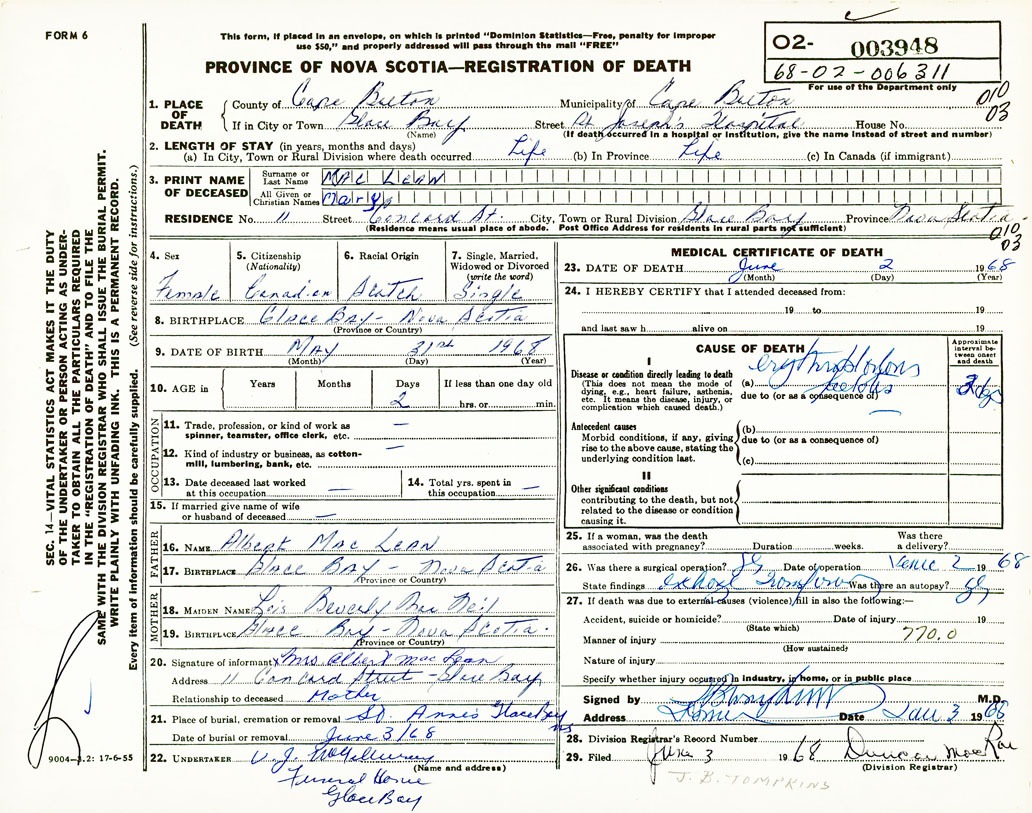 FORM 6
This form, if placed in an envelope, on which is printed "Dominion Statistics—Free, penalty for improper
use $50," and properly addressed will pass through the mail "FREE"
PROVINCE OF NOVA SCOTIA—REGISTRATION OF DEATH
02- 003948
68-02-006311
For use of the Department only
010
03
1. PLACE OF DEATH
County of Cape Breton Municipality of Cape Breton
If in City or Town Glace Bay Street St Joseph's Hospital House No.
(Name) (If death occurred in a hospital or institution, give the name instead of street and number)
2. LENGTH OF STAY (in years, months and days)
(a) In City, Town or Rural Division where death occurred Life (b) In Province Life (c) In Canada (if immigrant)
3. PRINT NAME OF DECEASED
Surname or Last Name MAC LEAN
All Given or Christian Names Mary
RESIDENCE No. 11 Street Concord St. City, Town or Rural Division Glace Bay Province Nova Scotia
(Residence means usual place of abode. Post Office Address for residents in rural parts not sufficient)
010
03
4. Sex Female
5. Citizenship (Nationality) Canadian
6. Racial Origin Scotch
7. Single, Married, Widowed or Divorced (write the word) Single
8. BIRTHPLACE Glace Bay - Nova Scotia
(Province or Country)
9. DATE OF BIRTH MAY 31st 1968
(Month) (Day) (Year)
10. AGE in Years Months Days If less than one day old
2 hrs. or min.
OCCUPATION
11. Trade, profession, or kind of work as spinner, teamster, office clerk, etc. —
12. Kind of industry or business, as cotton-mill, lumbering, bank, etc. —
13. Date deceased last worked at this occupation —
14. Total yrs. spent in this occupation —
15. If married give name of wife or husband of deceased —
FATHER
16. NAME Albert Mac Lean
17. BIRTHPLACE Glace Bay - Nova Scotia
(Province or Country)
MOTHER
18. MAIDEN NAME Lois Beverly Mac Neil
19. BIRTHPLACE Glace Bay - Nova Scotia.
(Province or Country)
20. Signature of informant x Mrs Albert Mac Lean
Address 11 Concord Street - Glace Bay
Relationship to deceased Mother
21. Place of burial, cremation or removal St. Anne's Glace Bay NS
Date of burial or removal June 3/68
22. UNDERTAKER V. J. McGillivray
(Name and address)
Funeral Home
Glace Bay
MEDICAL CERTIFICATE OF DEATH
23. DATE OF DEATH June 2 1968
(Month) (Day) (Year)
24. I HEREBY CERTIFY that I attended deceased from:
19 to 19
and last saw h alive on 19
CAUSE OF DEATH
Approximate interval between onset and death
I
Disease or condition directly leading to death
(This does not mean the mode of dying, e.g., heart failure, asthenia, etc. It means the disease, injury, or complication which caused death.)
(a) erythroblastosis foetalis
due to (or as a consequence of)
Antecedent causes
Morbid conditions, if any, giving rise to the above cause, stating the underlying condition last.
(b)
due to (or as a consequence of)
(c)
II
Other significant conditions
contributing to the death, but not related to the disease or condition causing it.
25. If a woman, was the death associated with pregnancy? Duration weeks. Was there a delivery?
26. Was there a surgical operation? Date of operation June 2 1968
State findings Was there an autopsy?
27. If death was due to external causes (violence) fill in also the following:—
Accident, suicide or homicide? Date of injury 19
(State which)
Manner of injury 770.0
(How sustained)
Nature of injury
Specify whether injury occurred in industry, in home, or in public place
Signed by M.D.
Address Date 3 1968
28. Division Registrar's Record Number
29. Filed June 3 1968 Duncan MacRae
(Division Registrar)
J. B. TOMPKINS
SEC. 14—VITAL STATISTICS ACT MAKES IT THE DUTY
OF THE UNDERTAKER OR PERSON ACTING AS UNDER-
TAKER TO OBTAIN ALL THE PARTICULARS REQUIRED
IN THE "REGISTRATION OF DEATH" AND TO FILE THE
SAME WITH THE DIVISION REGISTRAR WHO SHALL ISSUE THE BURIAL PERMIT.
WRITE PLAINLY WITH UNFADING INK. THIS IS A PERMANENT RECORD.
Every item of information should be carefully supplied. (See reverse side for instructions.)
9004—3.2: 17-6-55